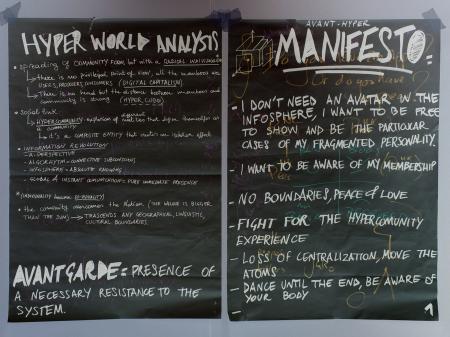 HYPER WORLD ANALYSIS
SPREADING OF COMMUNITY FORM, BUT WITH A RADICAL
THERE IS NO PRIVILEGED POINT OF VIEW, ALL THE MEMBERS ARE
USERS, PRODUCERS, CONSUMERS (DIGITAL CAPITALISM)
THERE IS NO HEAD BUT THE DISTANCE BETWEEN MEMBERS AND
COMMUNITY IS STRONG (HYPER CUBO)
SOCIAL LINK
HYPERCOMMUNITY =
A COMMUNITY
IT'S A COMPOSITE ENTITY THAT CREATES AN ISOLATION EFFECT
INFORMATION REVOLUTION
- A-PERSPECTIVE
- ALGORITHM = CONNECTIVE SUBCONSCIOUS
- INFOSPHERE = ABSOLUTE KNOWING
- GLOBAL & INSTANT COMMUNICATION = PURE IMMEDIATE PRESENCE
THE COMMUNITY OVERCOMES THE NATION (THE VALUE IS BIGGER
THAN THE SUM) → TRASCENDS ANY GEOGRAPHICAL, LINGUISTIC,
CULTURAL BOUNDARIES
AVANTGARDE = PRESENCE OF
A NECESSARY RESISTANCE TO THE
SYSTEM.
AVANT-HYPER
MANIFESTO =
- I DON'T NEED AN AVATAR IN THE
INFOSPHERE, I WANT TO BE FREE
TO SHOW AND BE THE PARTICULAR
CASES OF MY FRAGMENTED PERSONALITY
- I WANT TO BE AWARE OF MY MEMBERSHIP
- NO BOUNDARIES, PEACE & LOVE
- FIGHT FOR THE HYPERCOMUNITY
EXPERIENCE
- LOSS OF CENTRALIZATION, MOVE THE
ATOMS
- DANCE UNTIL THE END, BE AWARE OF
YOUR BODY
-
1